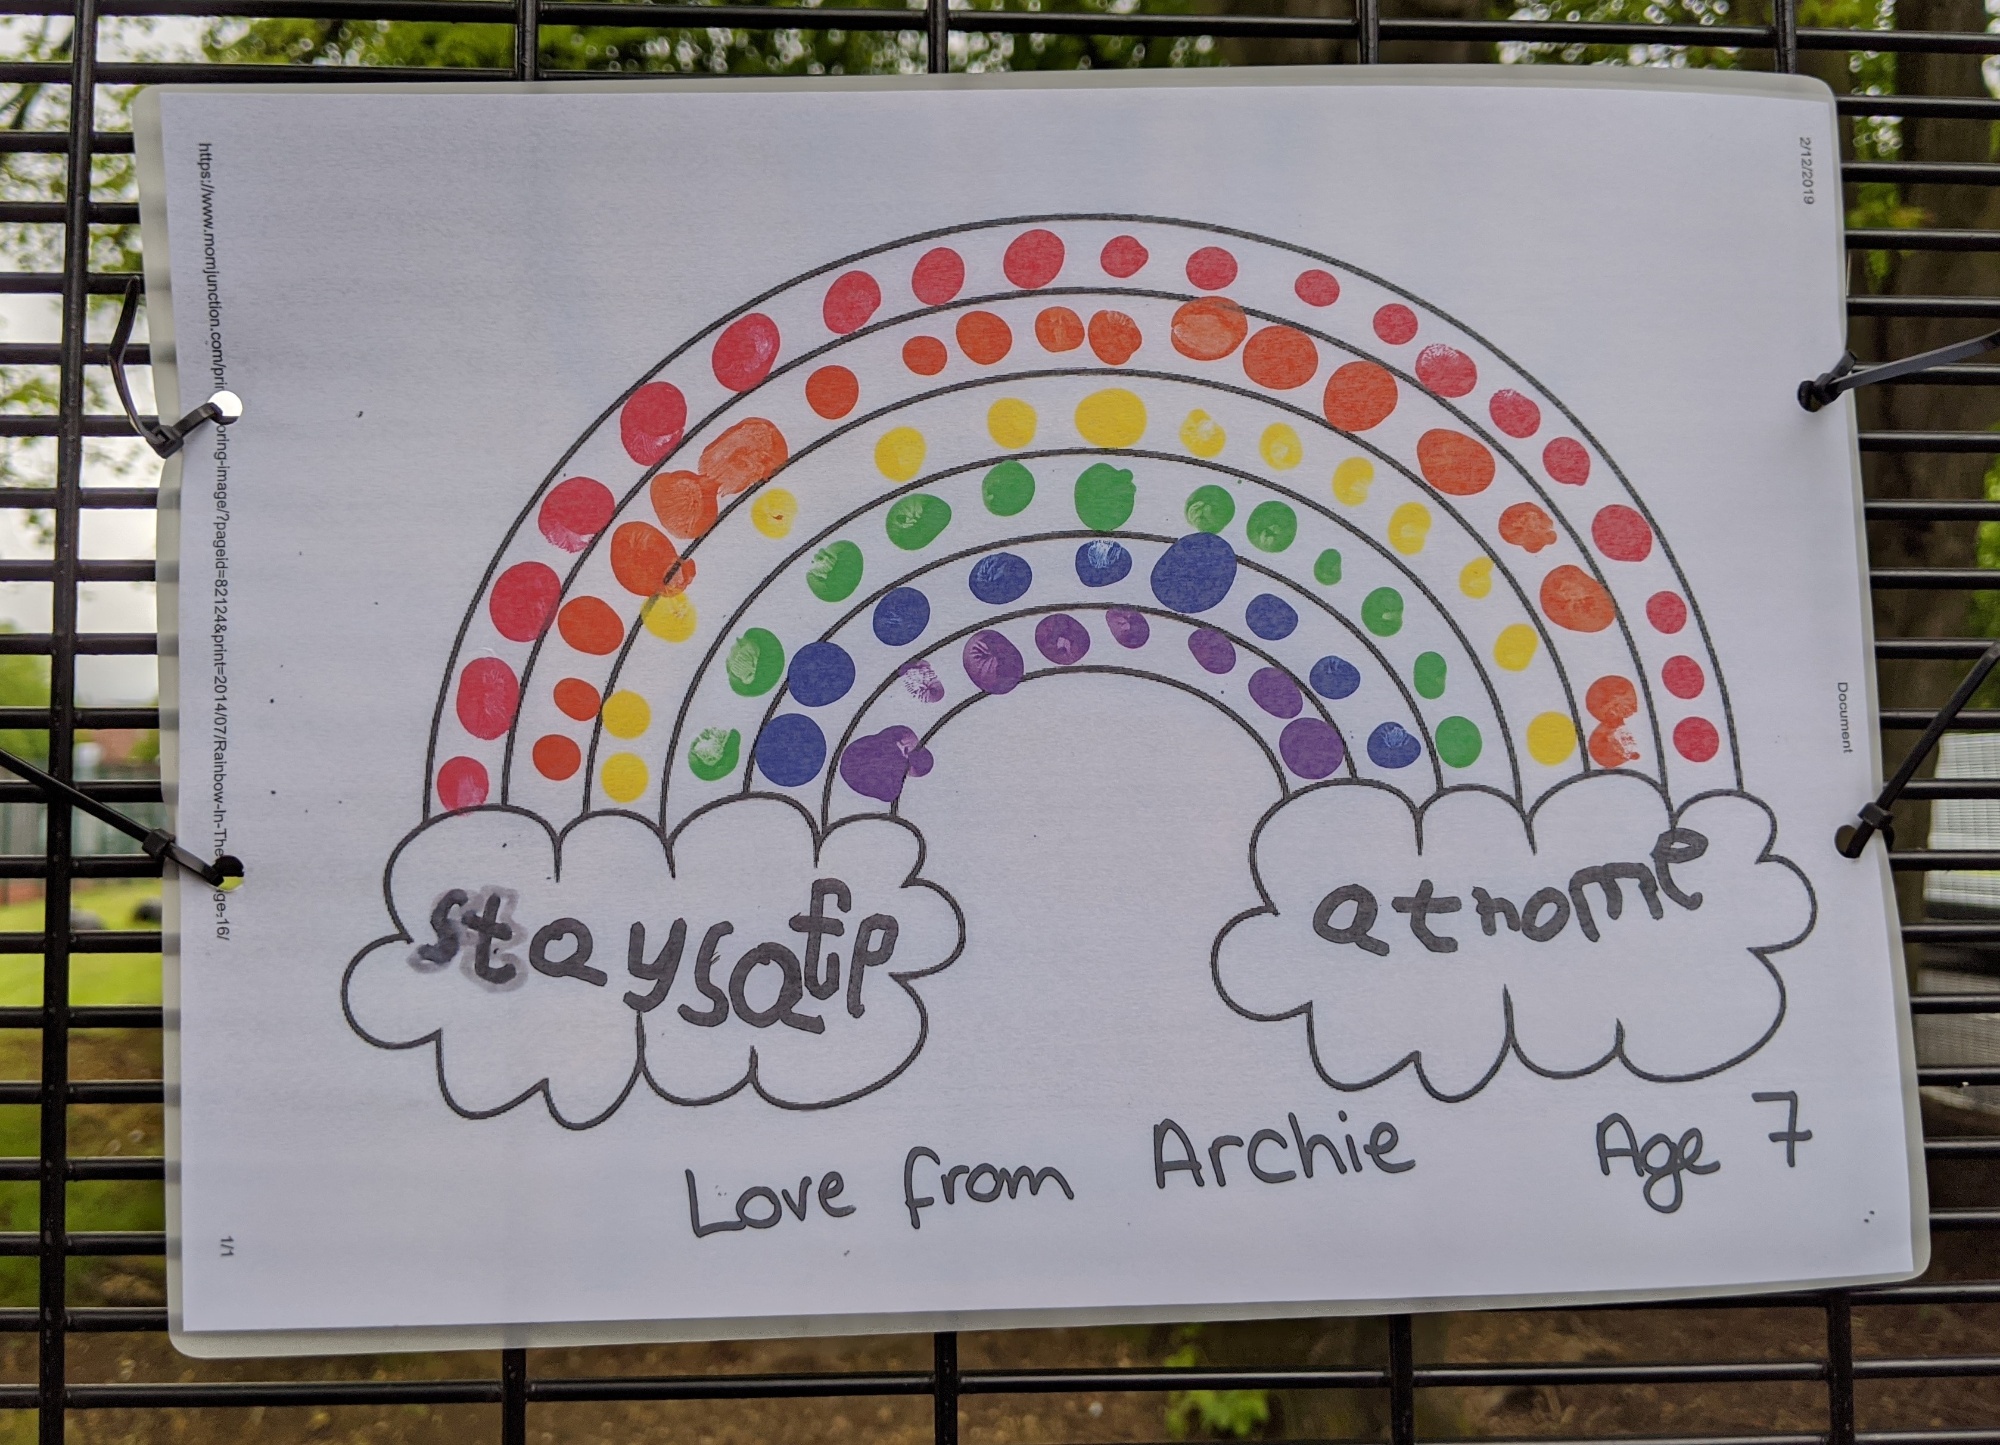 2/12/2019
Document
https://www.momjunction.com/pri oring-image/?pageid=82124&print=2014/07/Rainbow-In-The ge-16/
staysafe
athome
Love from Archie Age 7
1/1